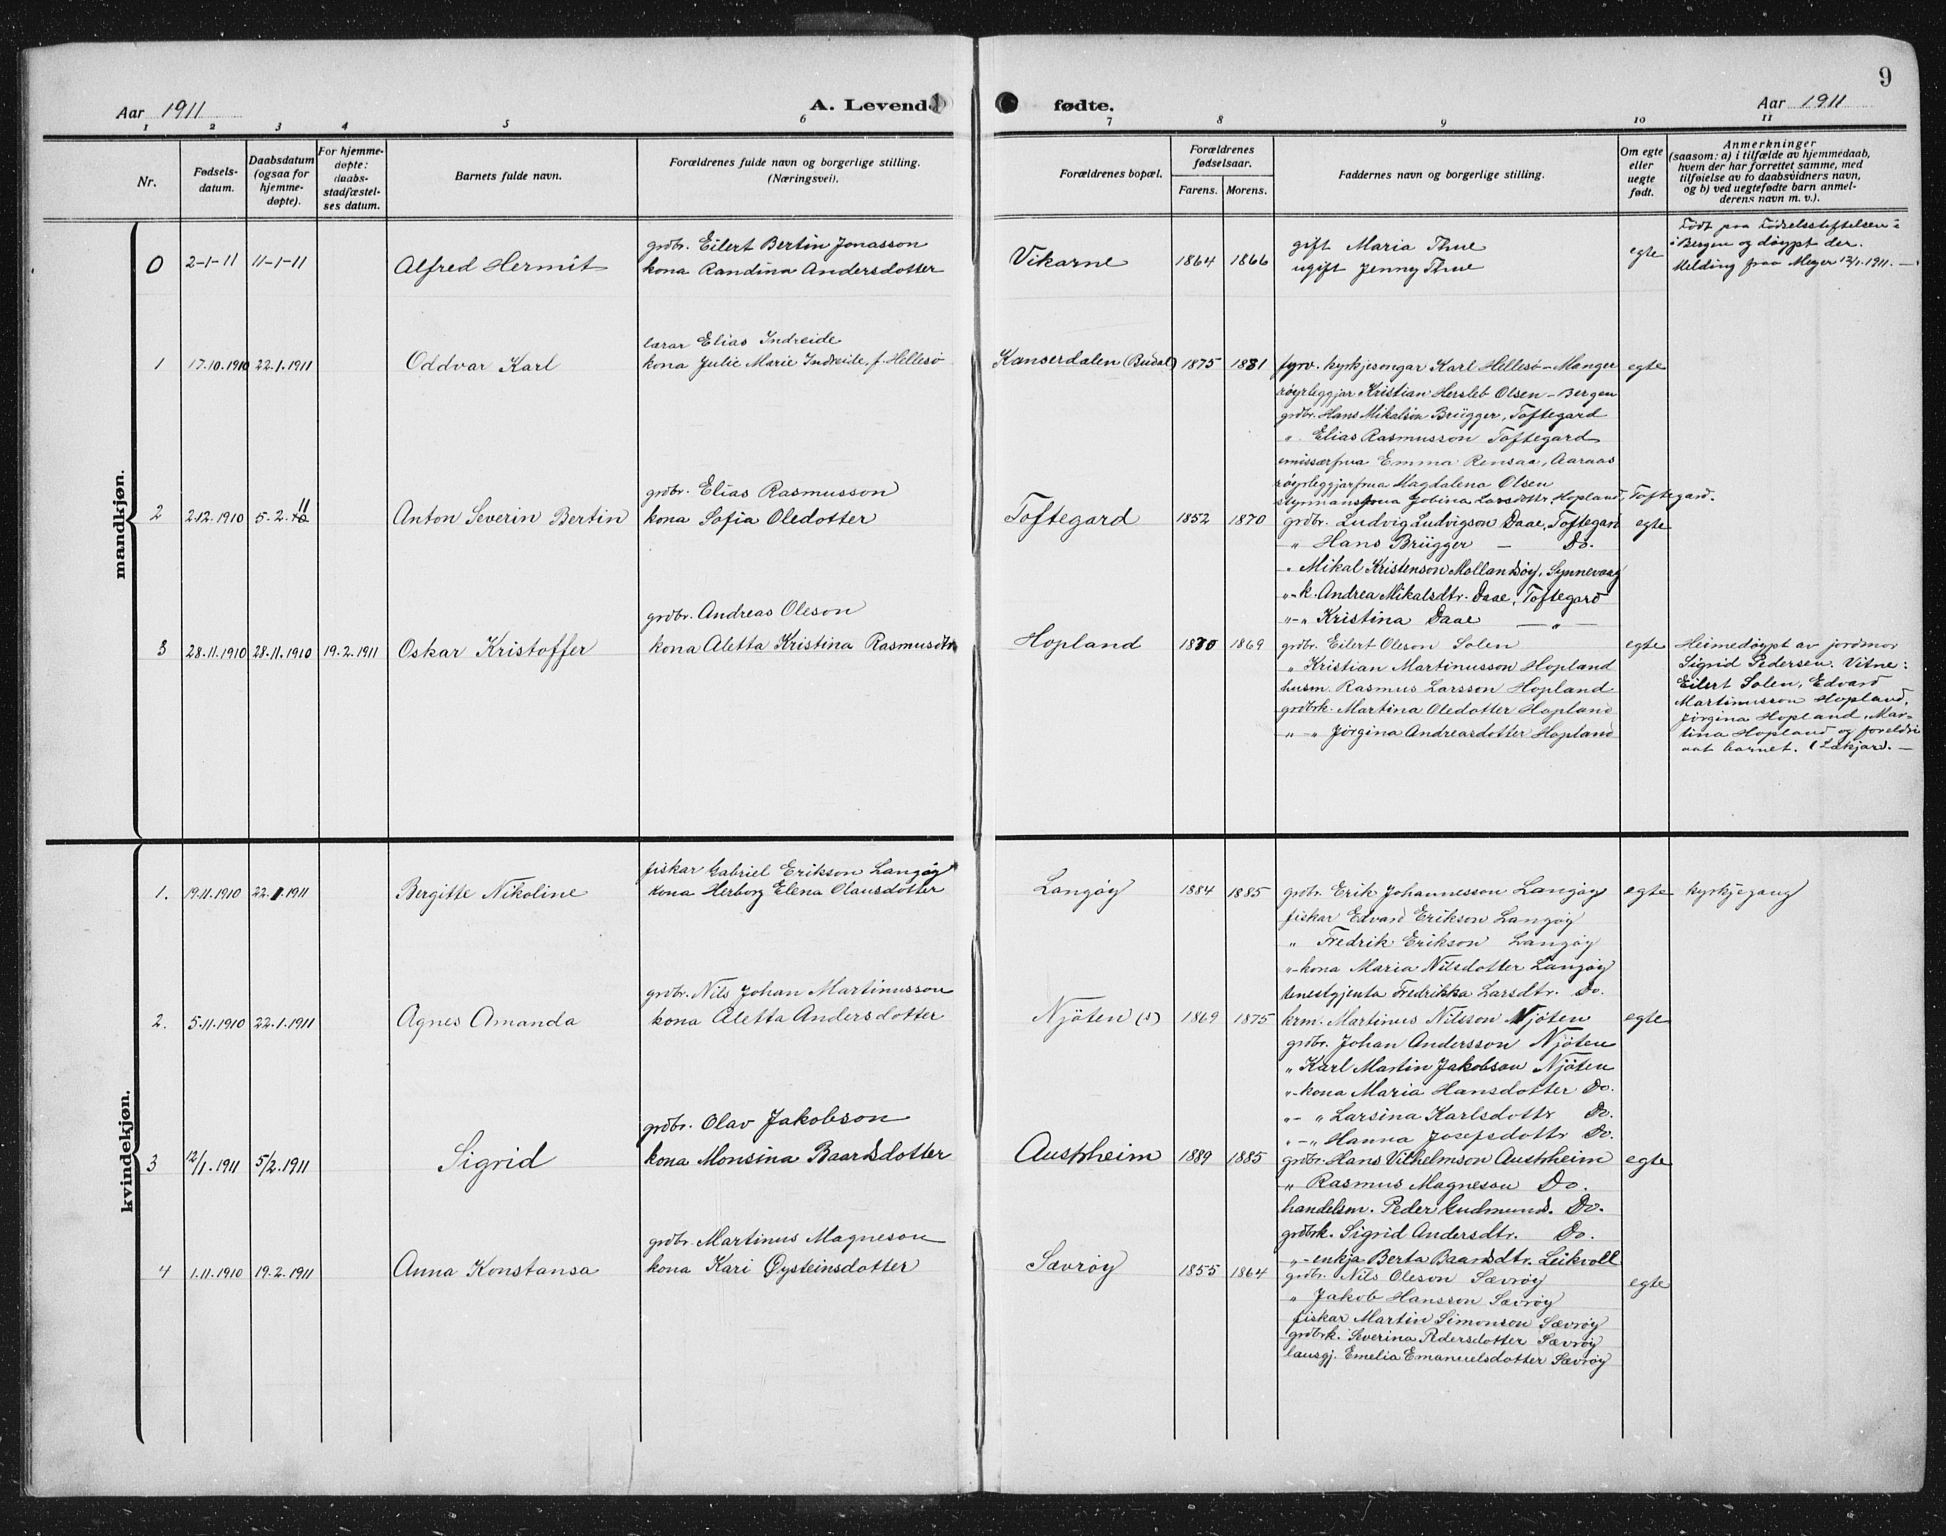 9
Aar 1911
A. Levende
fødte.
Aar 1911
1 2 3 4 5 6 7 8 9 10 11
Nr.
Fødsels-
datum.
Daabsdatum
(ogsaa for
hjemme-
døpte).
For hjemme-
døpte:
daabs-
stadfæstel-
ses datum.
Barnets fulde navn.
Forældrenes fulde navn og borgerlige stilling.
(Næringsvei).
Forældrenes bopæl.
Forældrenes
fødselsaar.
Farens. Morens.
Faddernes navn og borgerlige stilling.
Om egte
eller
uegte
født.
Anmerkninger
(saasom: a) i tilfælde av hjemmedaab,
hvem der har forrettet samme, med
tilføielse av to daabsvidners navn,
og b) ved uegtefødte barn anmel-
derens navn m. v.).
mandkjøn.
0 2-1-11 11-1-11 Alfred Hermit
grdbr. Eilert Bertin Jonasson
kona Randina Andersdotter
Vikarne 1864 1866
gift Maria Thue
ugift Jenny Thue
egte
Født paa Fødselsstiftelsen i
Bergen og døypt der.
Melding fraa Meyer 12/1.1911.
1 17.10.1910 22.1.1911 Oddvar Karl
lærar Elias Indreide
kona Julie Marie Indreide, f. Hellesø
Kanserdalen (Budal) 1875 1881
fyrv. kyrkjesongar Karl Hellesø - Manger
røyrleggjar Kristian Hersleb Olsen - Bergen
grdbr. Hans Mikalson Brügger, Toftegard
" Elias Rasmusson Toftegard
emissærfrua Emma Rensaa, Aaraas
røyrleggjarfrua Magdalena Olsen
styrmansfrua Jobina Larsdottr. Hopland, Toftegard.
egte
2 2.12.1910 5.2.11 Anton Severin Bertin
grdbr. Elias Rasmusson
kona Sofia Oledotter
Toftegard 1852 1870
grdbr. Ludvig Ludvigson Daae, Toftegard
" Hans Brügger - Do.
" Mikal Kristenson Mollandsøy, Synnevaag
"-k. Andrea Mikalsdtr. Daae, Toftegard
"-" Kristina Daae - " -
egte
3 28.11.1910 28.11.1910 19.2.1911 Oskar Kristoffer
grdbr. Andreas Oleson
kona Aletta Kristina Rasmusdtr
Hopland 1870 1869
grdbr. Eilert Oleson Solen
" Kristian Martinusson Hopland
husm. Rasmus Larsson Hopland
grdbrk. Martina Oledotter Hopland
" " Jørgina Andreasdotter Hopland
egte
Heimedøypt av jordmor
Sigrid Pedersen. Vitne:
Eilert Solen, Edvard
Martinusson Hopland,
Jørgina Hopland, Mar-
tina Hopland og foreldri
aat barnet. (Lækjar).
kvindekjøn.
1. 19.11.1910 22.1.1911 Bergitte Nikoline
fiskar Gabriel Erikson Langøy
kona Herborg Elena Olausdotter
Langøy 1884 1885
grdbr. Erik Johannesson Langøy
fiskar Edvard Erikson Langøy
" Fredrik Erikson Langøy
"-kona Maria Nilsdotter Langøy
tenestgjenta Fredrikka Larsdtr. Do.
egte
kyrkjegang
2. 5.11.1910 22.1.1911 Agnes Amanda
grdbr. Nils Johan Martinusson
kona Aletta Andersdotter
Njøten (s) 1869 1875
krm. Martinus Nilsson Njøten
grdbr. Johan Andersson Njøten
" Karl Martin Jakobson Njøten
"-kona Maria Hansdotter Do.
"-" Larsina Karlsdottr Do.
"-" Hanna Josefsdottr Do.
egte
3 12/1.1911 5/2.1911 Sigrid
grdbr. Olav Jakobson
kona Monsina Baardsdotter
Austrheim 1889 1885
grdbr. Hans Vilhelmson Austrheim
" Rasmus Magneson Do.
handelsm. Peder Gudmunds. Do.
grdbrk. Sigrid Andersdtr. Do.
"-enkja Berta Baardsdtr. Leikvoll
egte
4 1.11.1910 19.2.1911 Anna Konstansa
grdbr. Martinus Magneson
kona Kari Øysteinsdotter
Sævrøy 1855 1864
grdbr. Nils Oleson Sævrøy
" Jakob Hansson Sævrøy
fiskar Martin Simonson Sævrøy
grdbrk. Severina Pedersdotter Sævrøy
lausgj. Emelia Emanuelsdotter Sævrøy
egte